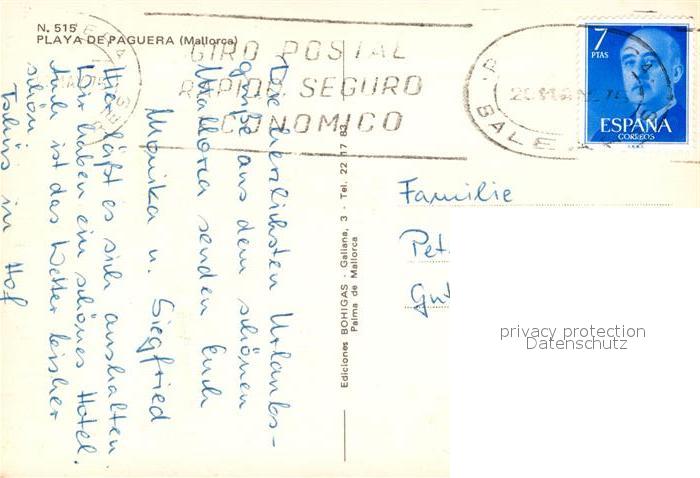 N. 515
PLAYA DE PAGUERA (Mallorca)
GIRO POSTAL
RAPIDO SEGURO
ECONOMICO
BALEARES
7
PTAS
ESPAÑA
CORREOS
Die herzlichsten Urlaubs-
grüße aus dem schönen
Mallorca senden Euch
Monika u. Siegfried
Hier läßt es sich aushalten.
Wir haben ein schönes Hotel.
Auch ist das Wetter bisher
schön
in Hof
Ediciones BOHIGAS - Galiana, 3 - Tel. 22 17 83
Palma de Mallorca
Familie
Pet
privacy protection
Datenschutz